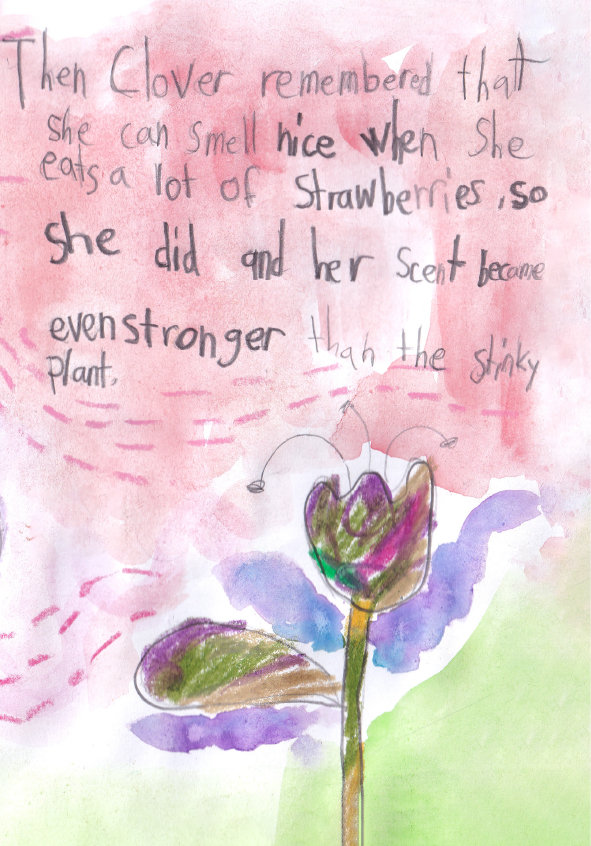 Then Clover remembered that
she can smell nice when she
eats a lot of Strawberries, so
she did and her scent became
even stronger than the stinky
plant.